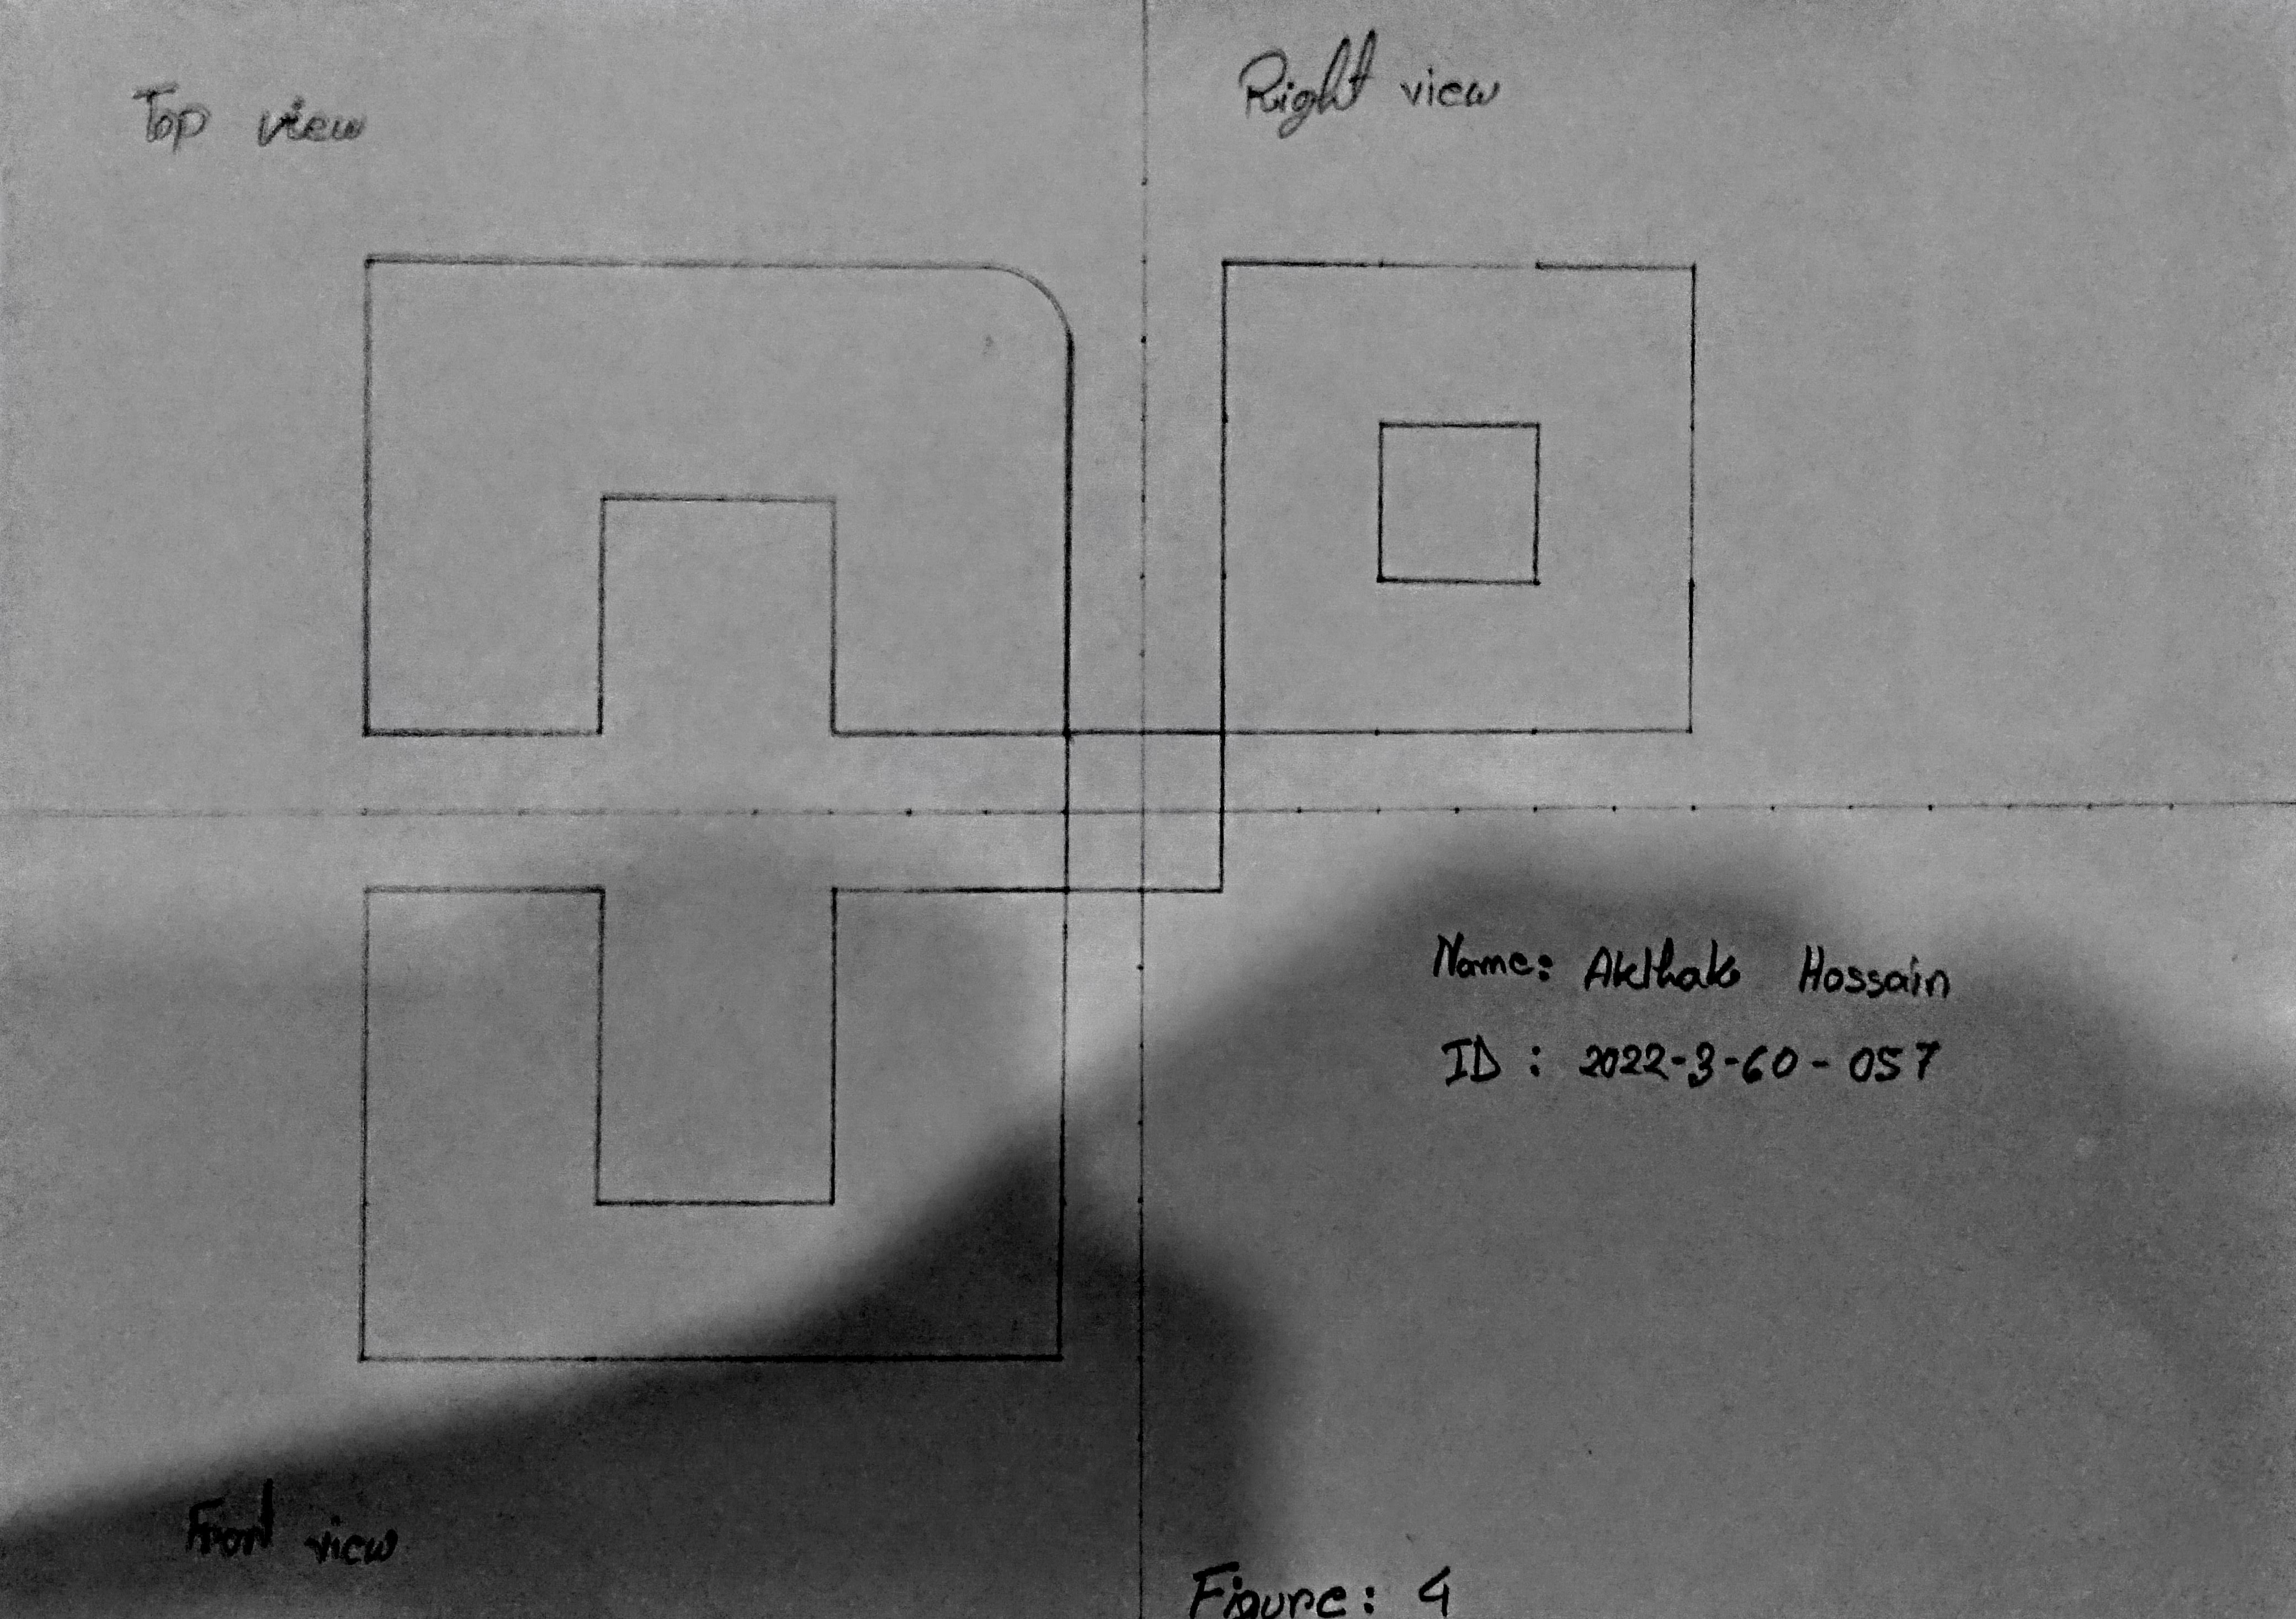 Top view
Right view
Name: Akthab Hossain
ID : 2022-3-60-057
Front view
Figure: 4